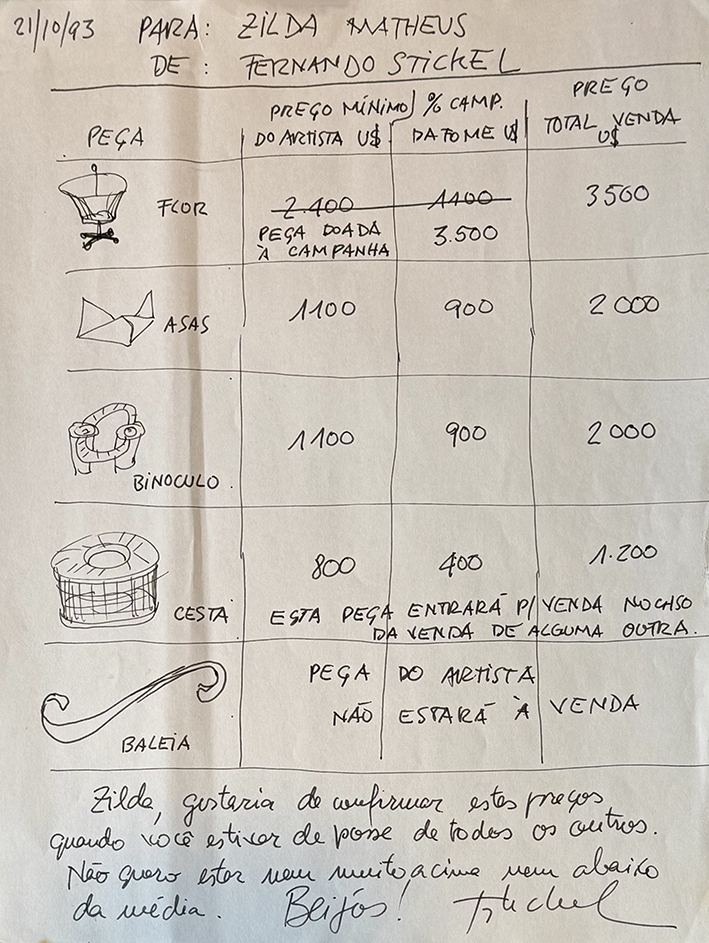 21/10/93 PARA: ZILDA MATHEUS
DE: FERNANDO STICKEL
PEÇA PREÇO MÍNIMO DO ARTISTA U$ % CAMP. DA FOME U$ PREÇO TOTAL VENDA U$
FLOR 2.400 1100 3500
PEÇA DOADA À CAMPANHA 3.500
ASAS 1100 900 2000
BINOCULO. 1100 900 2000
CESTA 800 400 1.200
ESTA PEÇA ENTRARÁ P/ VENDA NO CASO
DA VENDA DE ALGUMA OUTRA.
BALEIA PEÇA DO ARTISTA
NÃO ESTARÁ À VENDA
Zilda, gostaria de confirmar estes preços
quando você estiver de posse de todos os outros.
Não quero estar nem muito acima nem abaixo
da média. Beijos! Stickel